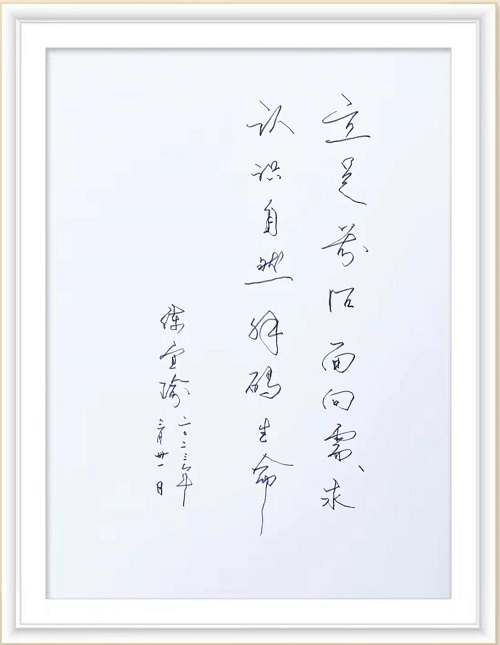 立足前沿面向需求
认识自然解码生命
陈宜瑜
二〇二三年
三月卅一日